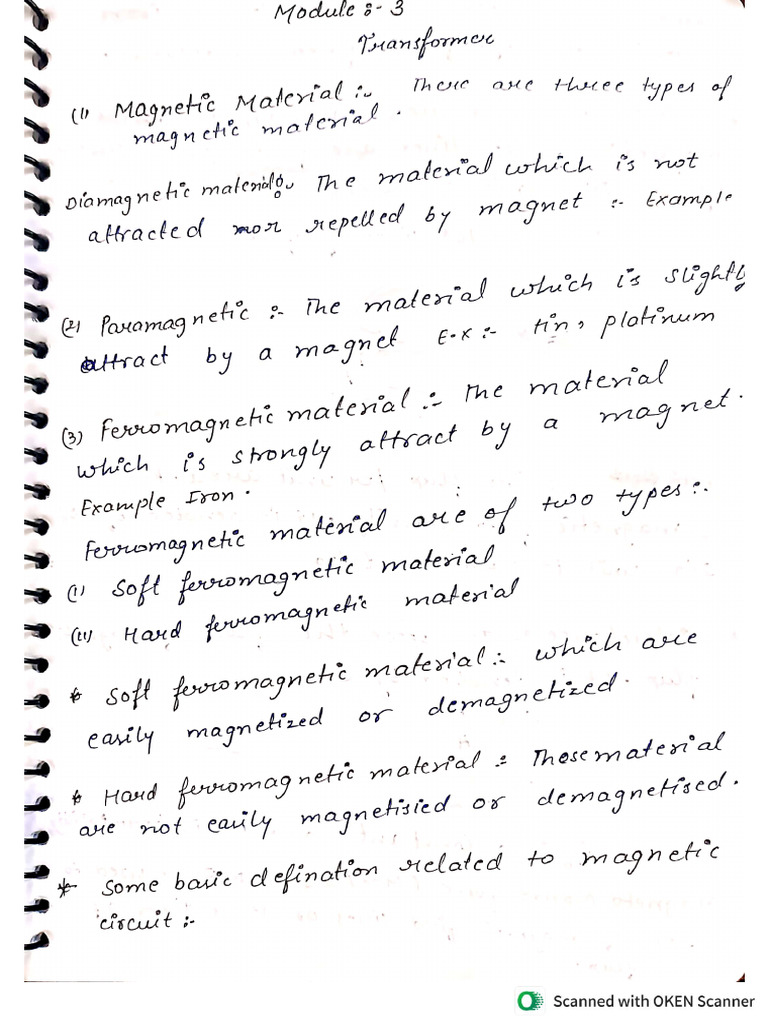 Module :- 3
Transformer
(1) Magnetic Material :- There are three types of
magnetic material .
Diamagnetic material :- The material which is not
attracted nor repelled by magnet :- Example
(2) Paramagnetic :- The material which is slightly
attract by a magnet E.X :- tin, platinum
(3) Ferromagnetic material :- The material
which is strongly attract by a magnet.
Example Iron .
Ferromagnetic material are of two types :-
(i) Soft ferromagnetic material
(ii) Hard ferromagnetic material
* Soft ferromagnetic material :- which are
easily magnetized or demagnetized.
* Hard ferromagnetic material :- Those material
are not easily magnetisied or demagnetised.
* Some basic defination related to magnetic
circuit :-
Scanned with OKEN Scanner